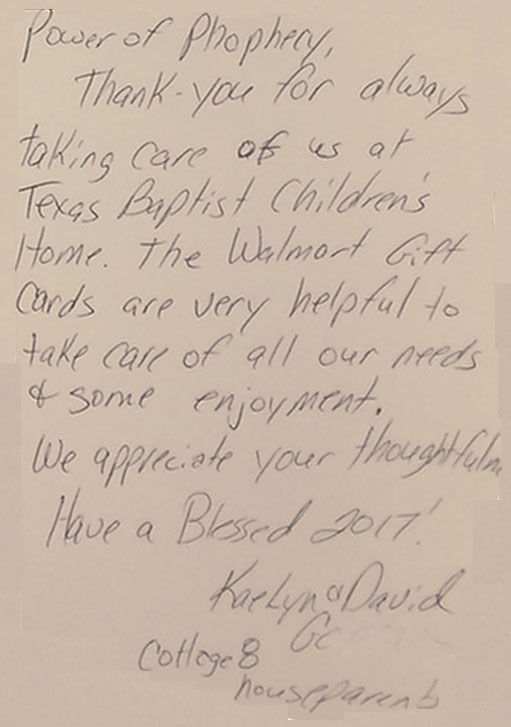 Power of Phophery,
Thank-you for always
taking care of us at
Texas Baptist Children's
Home. The Walmart Gift
Cards are very helpful to
take care of all our needs
& some enjoyment.
We appreciate your
Have a Blessed 2017!
Kaelyn & David
Cottage 8
houseparents